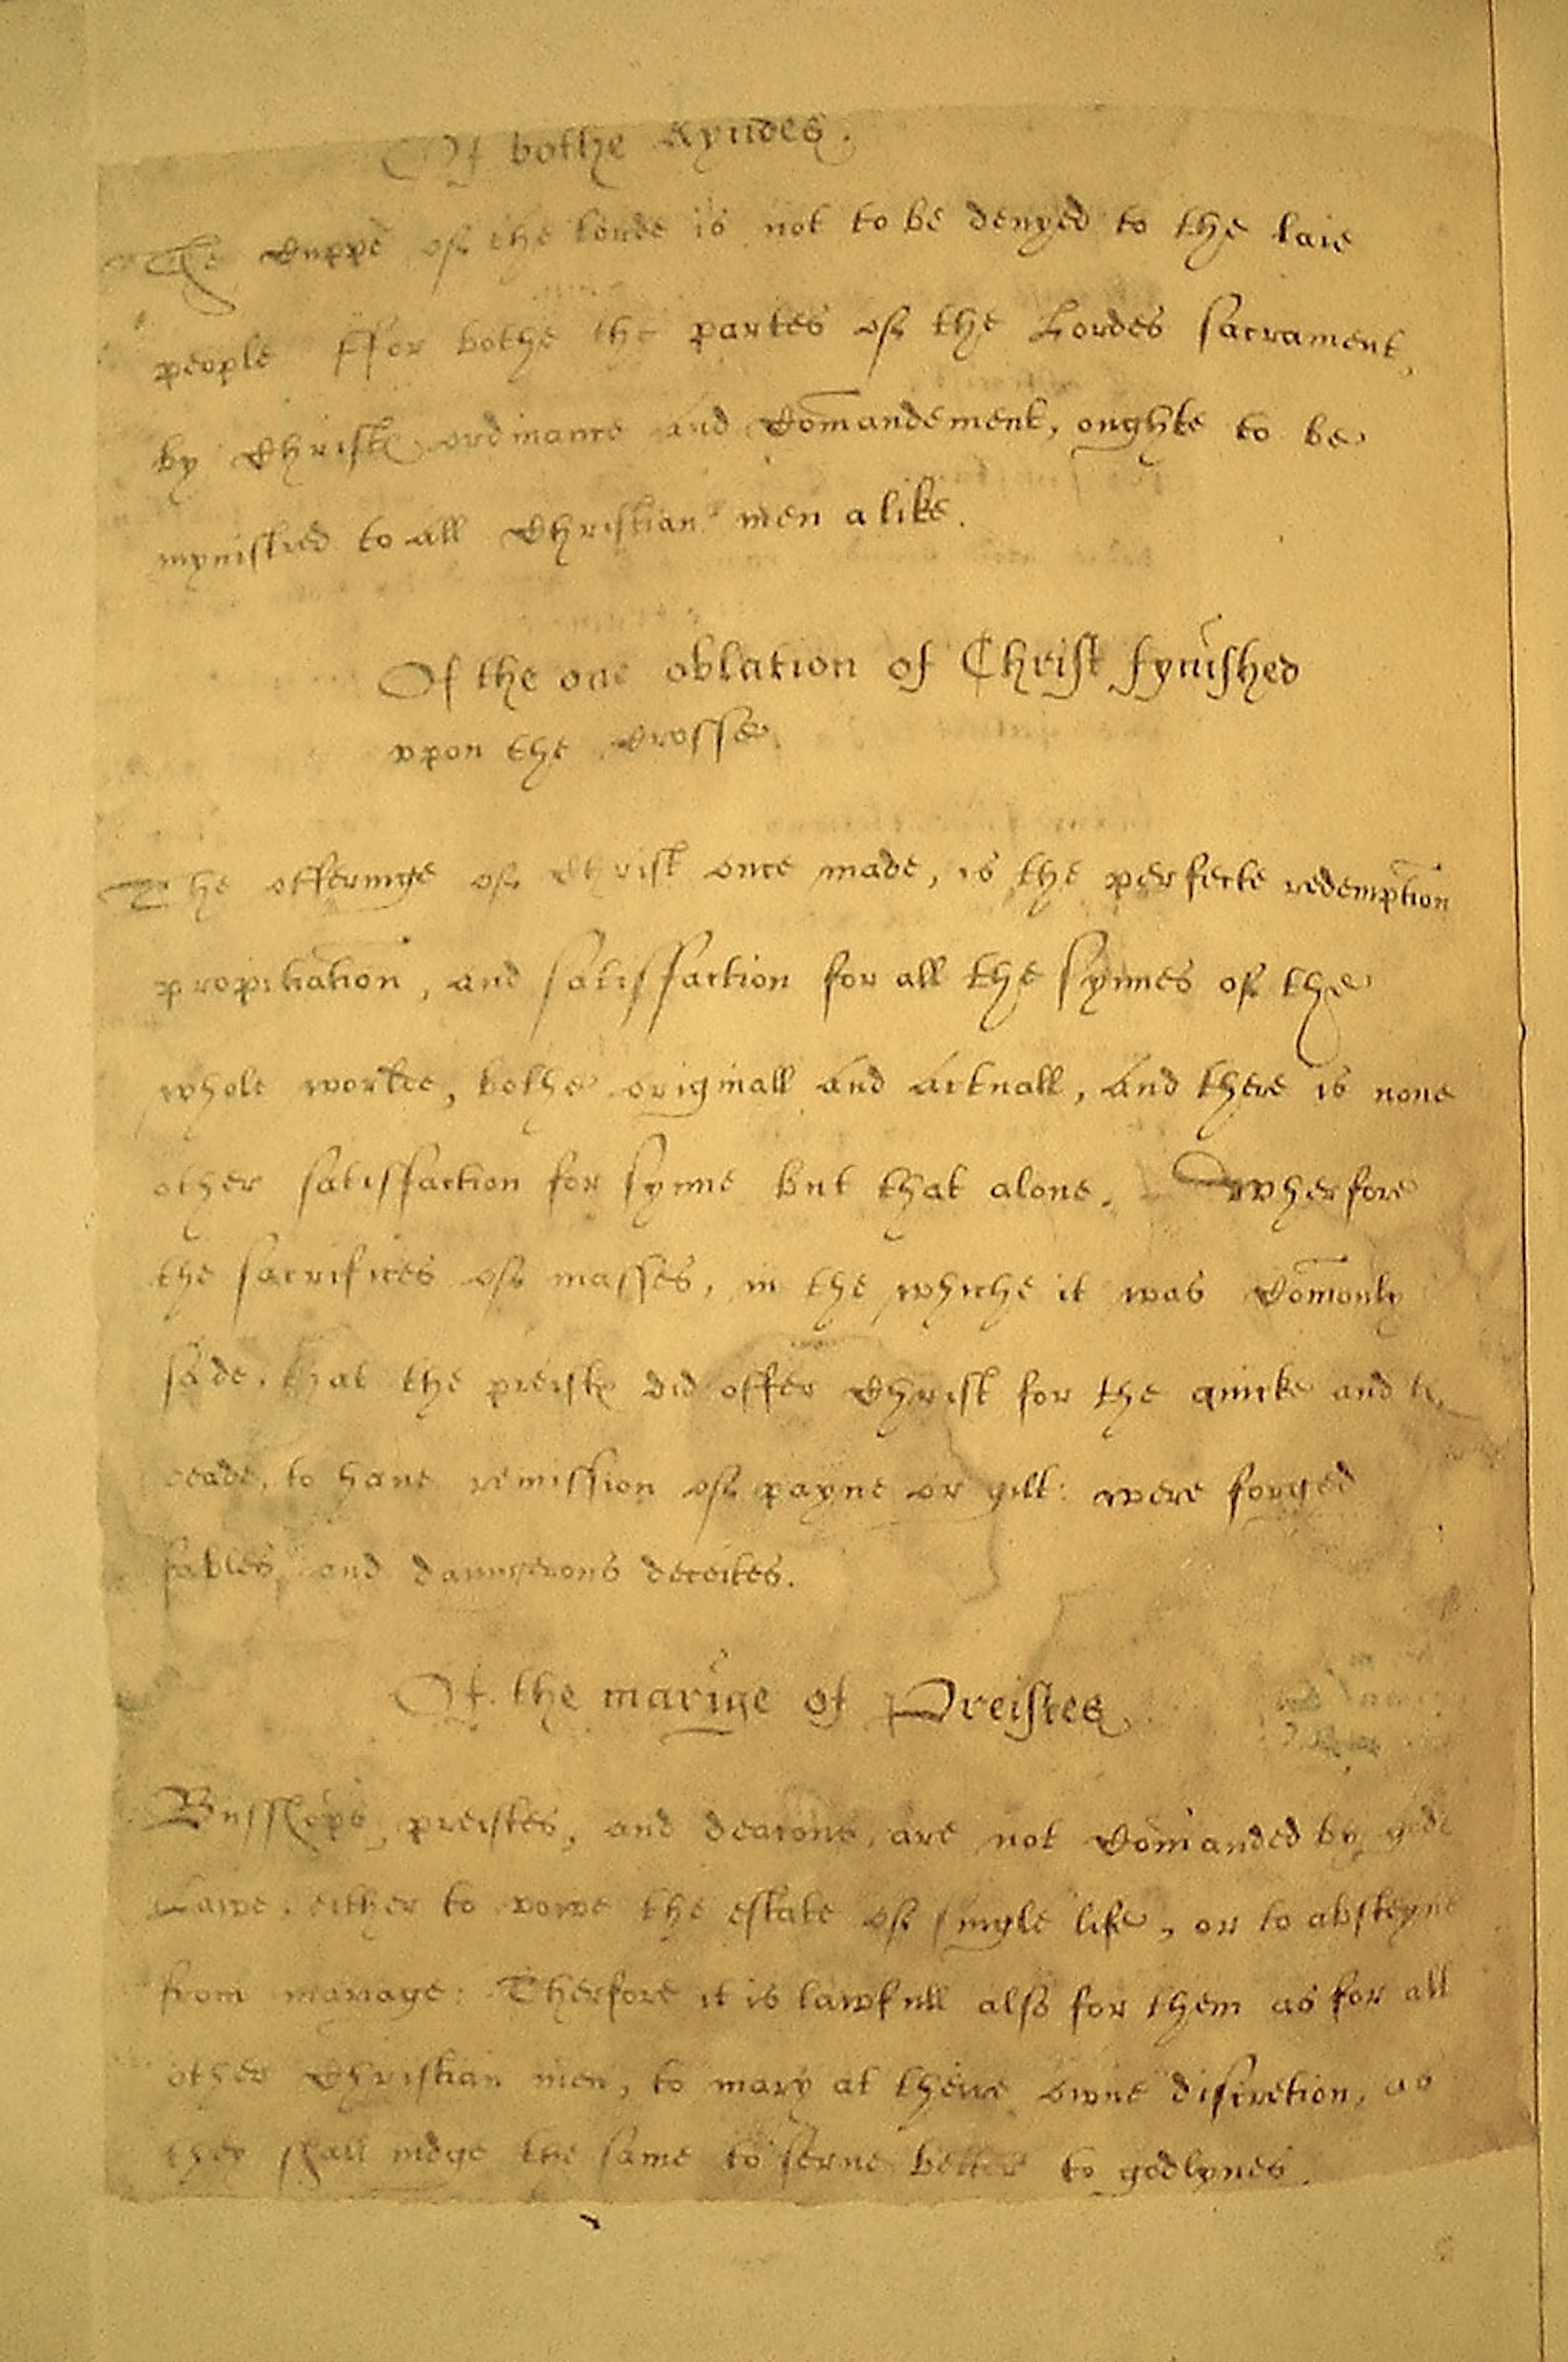 Of bothe kyndes.
The Cuppe of the lorde is not to be denyed to the laie
people ffor bothe the partes of the Lordes sacrament,
by Christes ordinance and Comandement, oughte to be
mynistred to all Christian men alike.
Of the one oblation of Christ fynished
vpon the Crosse.
The offeringe of Christ once made, is the perfecte redemption
propitiation, and satisfaction for all the synnes of the
whole worlde, bothe originall and actuall, and there is none
other satisfaction for synne but that alone. Wherfore
the sacrifices of masses, in the whiche it was Comonly
sade, that the preistes did offer Christ for the quicke and
deade, to haue remission of payne or gilt: were forged
fables, and daungerous deceites.
Of the mariage of Preistes
Busshops, preistes, and deacons, are not Comanded by gods
Lawe, either to vowe the estate of single life, or to absteyne
from mariage: Therfore it is lawfull also for them as for all
other Christian men, to mary at theire owne discretion, as
they shall iudge the same to serue better to godlynes.